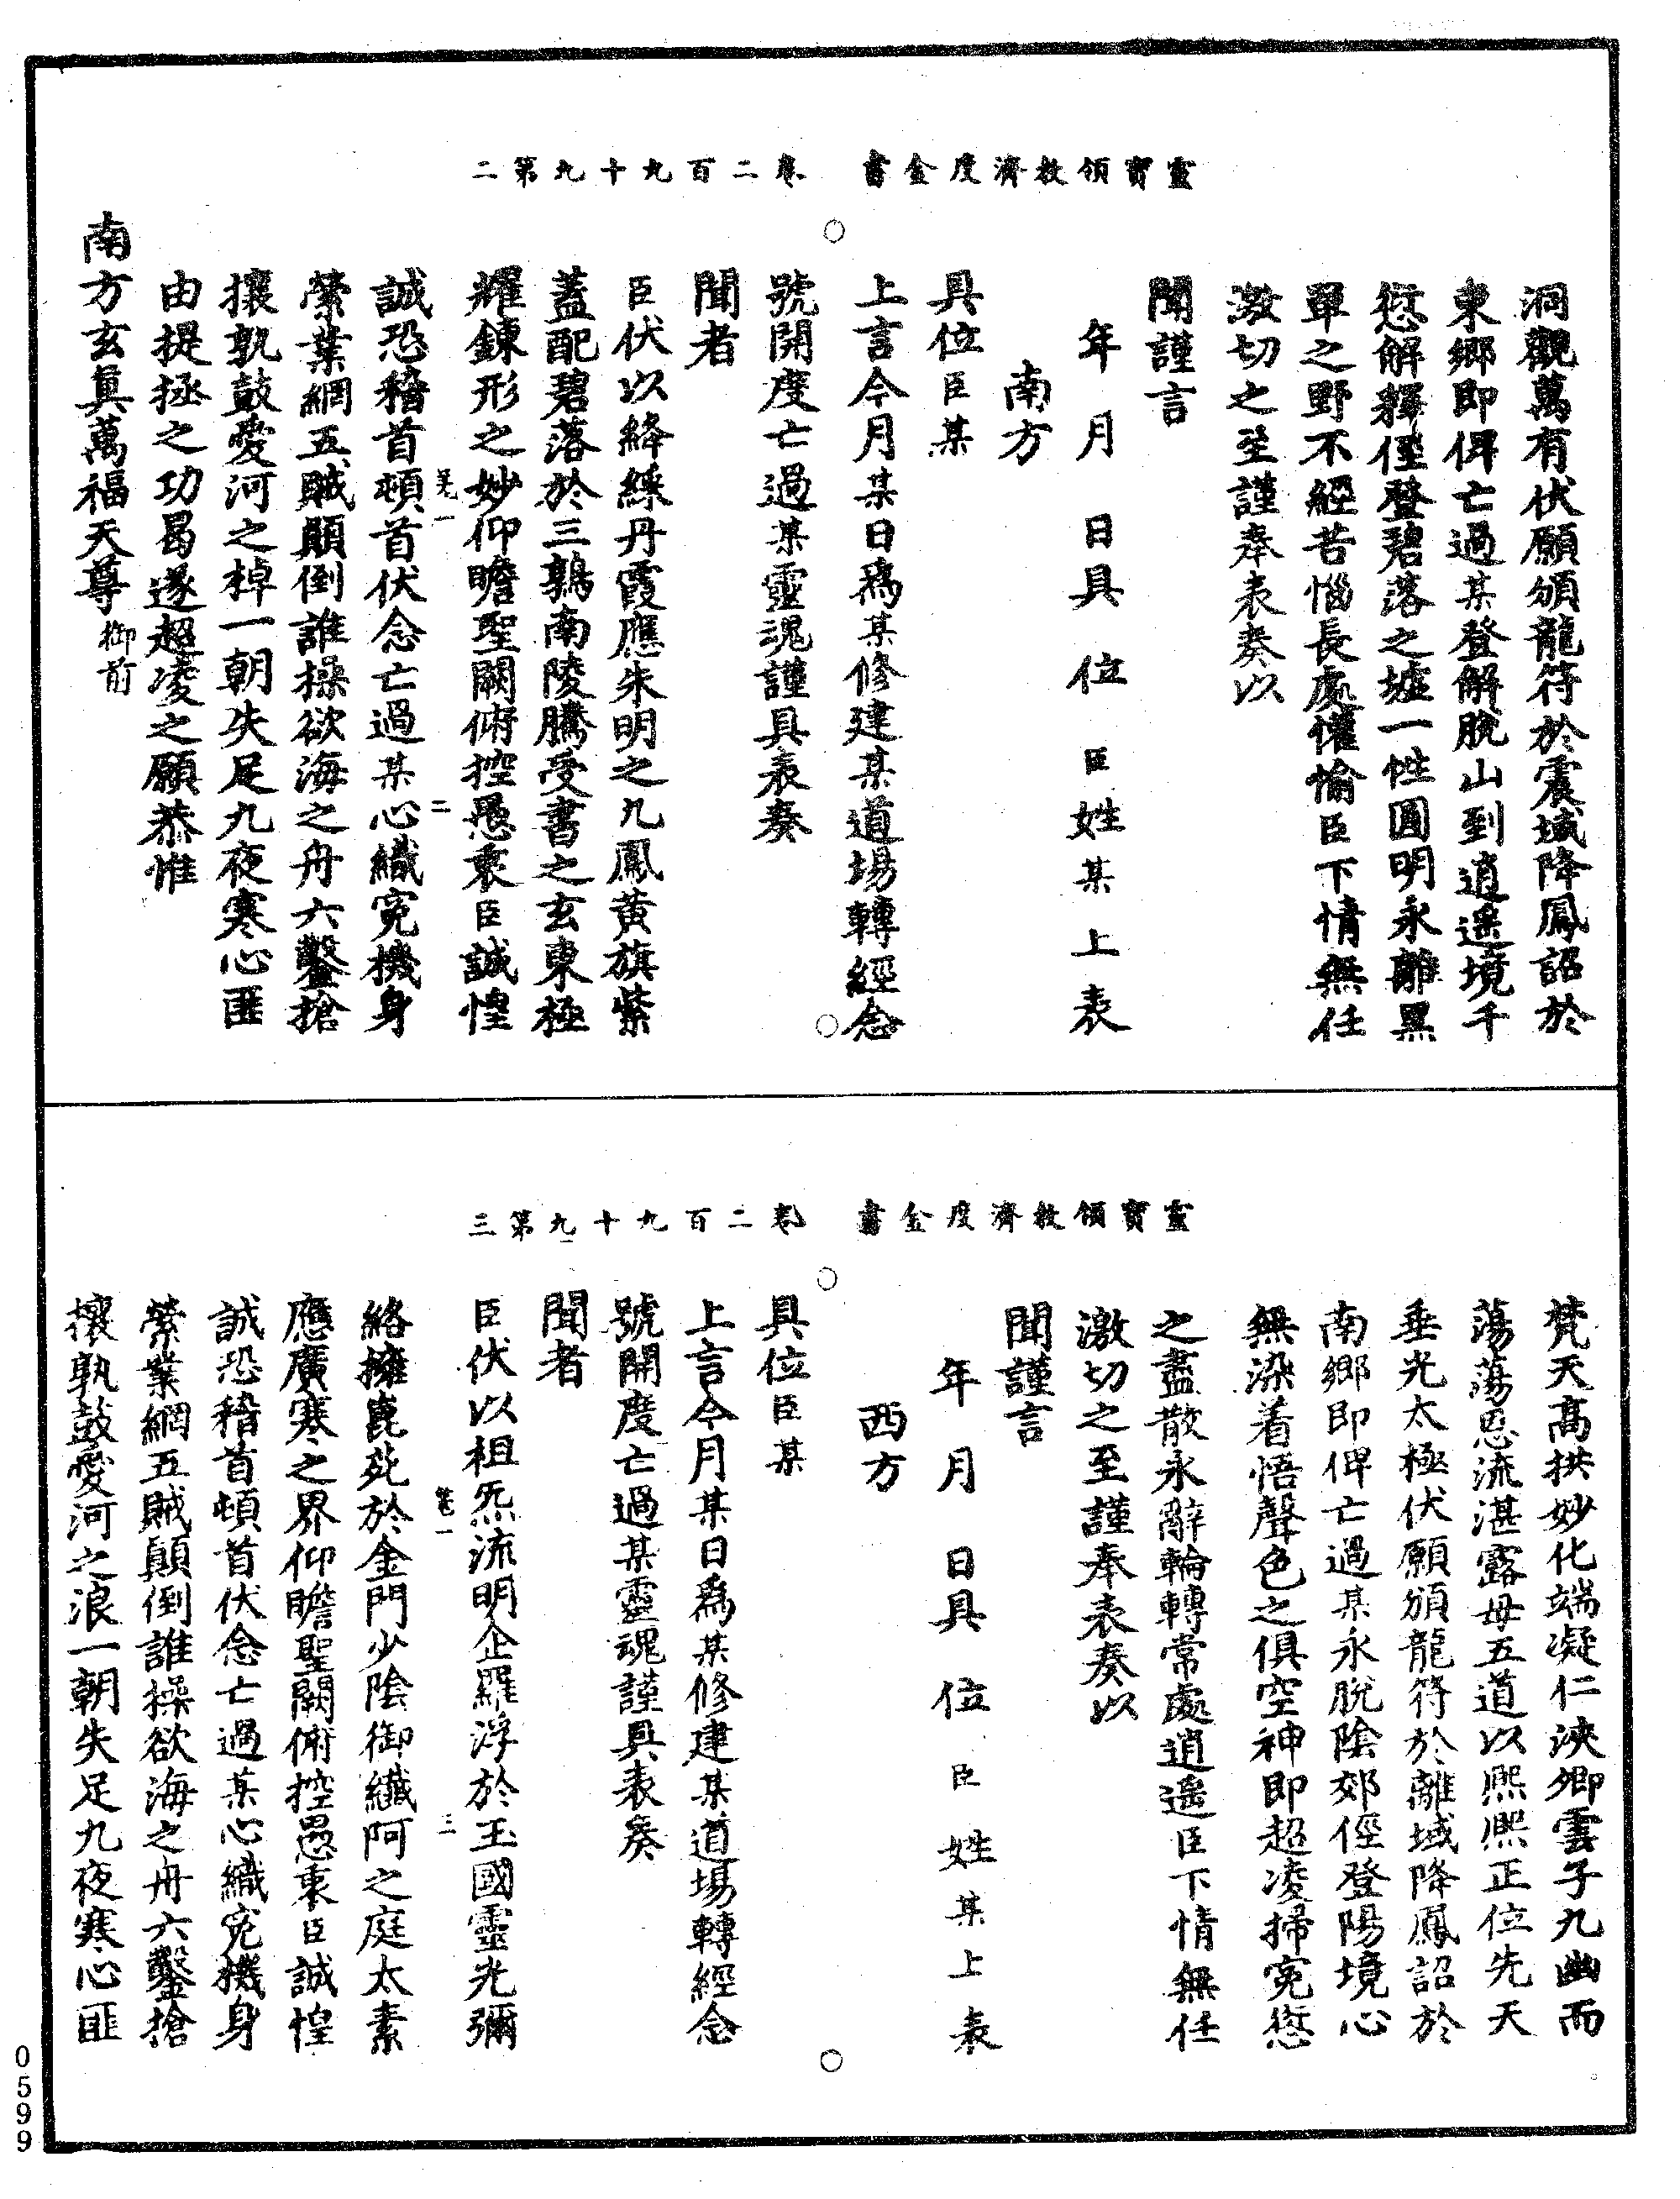 靈寶領教濟度金書 卷二百九十九第二
洞觀萬有伏願頒龍符於震域降鳳詔於
東鄉即俾亡過某登解脫山到逍遙境千
愆解釋徑登碧落之墟一性圓明永離黑
單之野不經苦惱長處懽愉臣下情無任
激切之至謹奉表奏以
聞謹言
年 月 日具 位 臣姓某 上表
南方
具位臣某
上言今月某日為某修建某道場轉經念
號開度亡過某靈魂謹具表奏
聞者
臣伏以絳綵丹霞應朱明之九鳳黃旗紫
蓋配碧落於三鶉南陵騰受書之玄東極
耀鍊形之妙仰瞻聖闕俯控愚衷臣誠惶
誠恐稽首頓首伏念亡過某心織寃機身
縈業網五賊顛倒誰操欲海之舟六鑿搶
攘孰鼓愛河之棹一朝失足九夜寒心匪
由提拯之功曷遂超凌之願恭惟
南方玄真萬福天尊御前
靈寶領教濟度金書 卷二百九十九第三
梵天高拱妙化端凝仁浹卿雲子九幽而
蕩蕩恩流湛露母五道以熙熙正位先天
垂光太極伏願頒龍符於離域降鳳詔於
南鄉即俾亡過某永脫陰郊徑登陽境心
無染着悟聲色之俱空神即超凌掃寃愆
之盡散永辭輪轉常處逍遙臣下情無任
激切之至謹奉表奏以
聞謹言
年 月 日具 位 臣 姓某上 表
西方
具位臣某
上言今月某日為某修建某道場轉經念
號開度亡過某靈魂謹具表奏
聞者
臣伏以祖炁流明企羅浮於玉國靈光彌
絡擁崑苑於金門少陰御纖阿之庭太素
應廣寒之界仰瞻聖闕俯控愚衷臣誠惶
誠恐稽首頓首伏念亡過某心織寃機身
縈業網五賊顛倒誰操欲海之舟六鑿搶
攘孰鼓愛河之浪一朝失足九夜寒心匪
0599